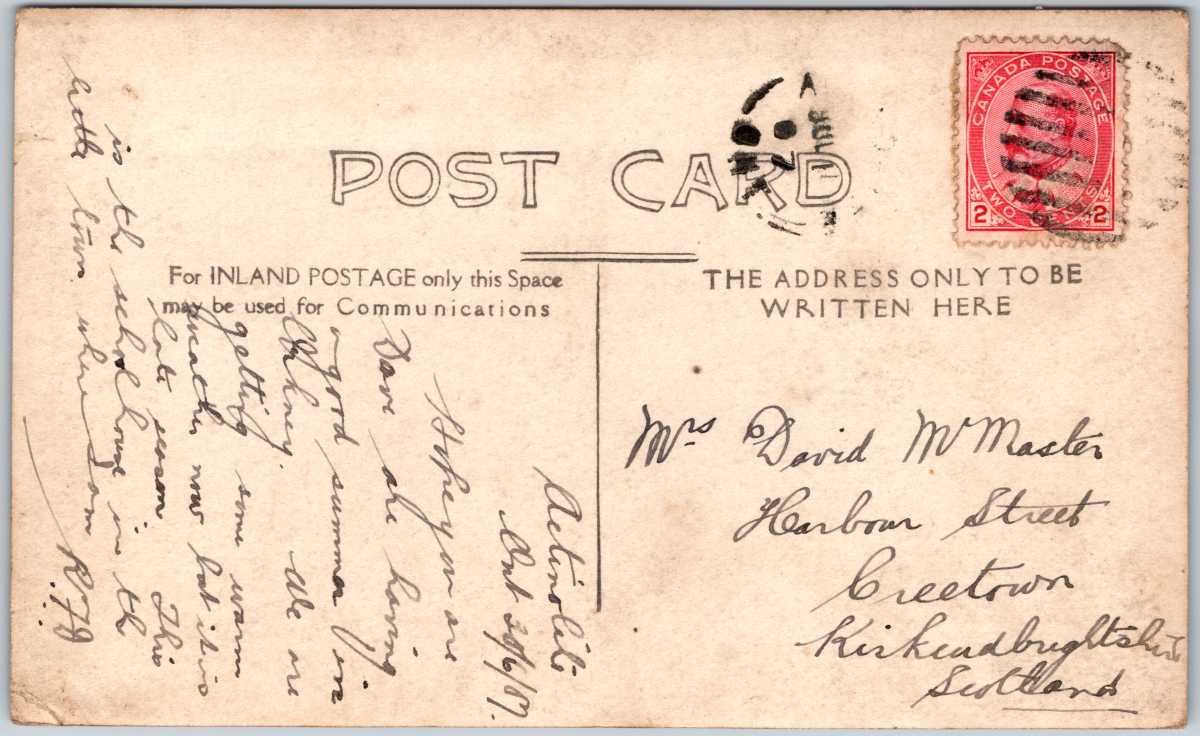 POST CARD
CANADA POSTAGE
2 TWO CENTS 2
For INLAND POSTAGE only this Space
may be used for Communications
THE ADDRESS ONLY TO BE
WRITTEN HERE
Actinolite
Ont 30/6/07.
Hope you are
Dave are having
a good summer in
We are
getting some warm
weather now but it is
late season This
is the school house in the
little town where I am
Mrs David McMaster
Harbour Street
Creetown
Kirkcudbrightshire
Scotland